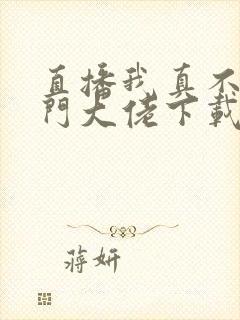 直播我真不
門大佬下載
蔣妍